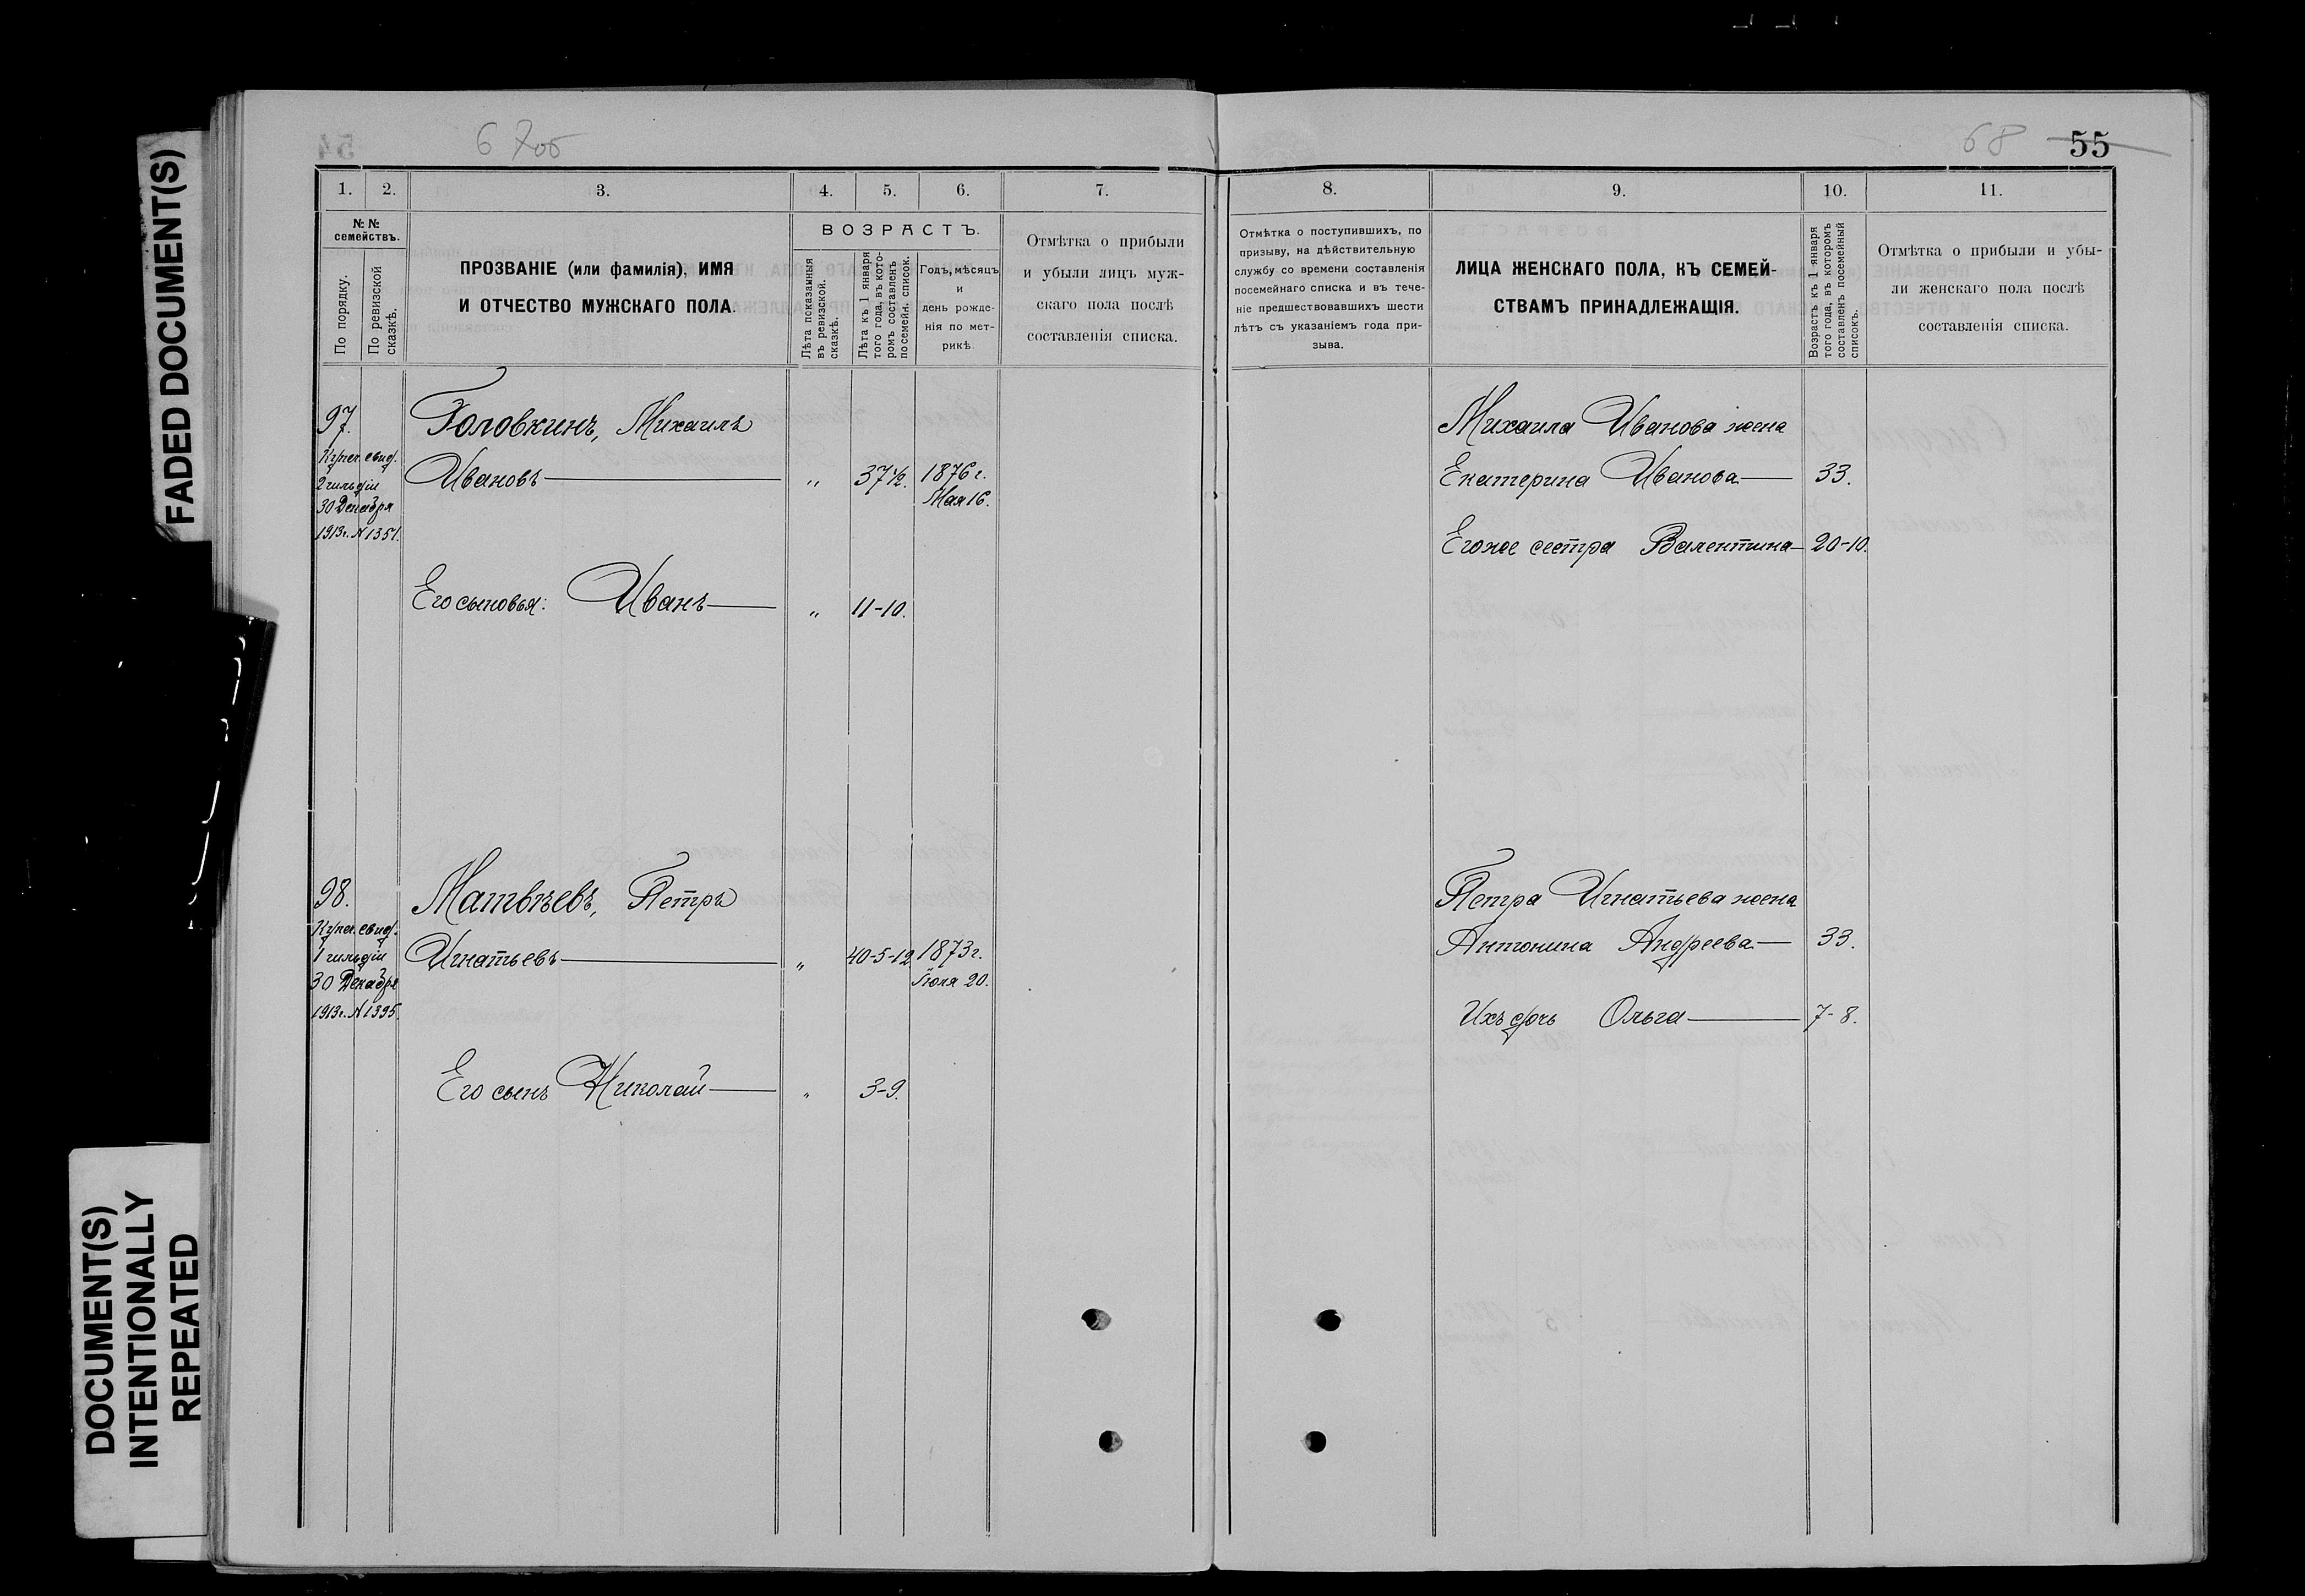 FADED DOCUMENT(S)
DOCUMENT(S)
INTENTIONALLY
REPEATED
54
67об
1. 2. 3. 4. 5. 6. 7.
№ №
семействъ.
По порядку.
По ревизской
сказкѣ.
ПРОЗВАНІЕ (или фамилія), ИМЯ
И ОТЧЕСТВО МУЖСКАГО ПОЛА.
ВОЗРАСТЪ.
Лѣта показанныя
въ ревизской.
сказкѣ.
Лѣта къ 1 января
того года, въ кото-
ромъ составленъ
посемейн. список.
Годъ, мѣсяцъ
и
день рожде-
нія по мет-
рикѣ.
Отмѣтка о прибыли
и убыли лицъ муж-
скаго пола послѣ
составленія списка.
97.
Купеч. свид.
2 гильдіи
30 Декабря
1913г. № 1351.
Головкинъ, Михаилъ
Ивановъ — „ 37½. 1876 г.
Мая 16.
Его сыновья: Иванъ — „ 11-10.
98.
Купеч. свид.
1 гильдіи
30 Декабря
1913г. № 1395.
Матвѣевъ, Петръ
Игнатьевъ — „ 40-5-12 1873 г.
Іюля 20.
Его сынъ Николай — „ 3-9.
68 55
8. 9. 10. 11.
Отмѣтка о поступившихъ, по
призыву, на дѣйствительную
службу со времени составленія
посемейнаго списка и въ тече-
ніе предшествовавшихъ шести
лѣтъ съ указаніемъ года при-
зыва.
ЛИЦА ЖЕНСКАГО ПОЛА, КЪ СЕМЕЙ-
СТВАМЪ ПРИНАДЛЕЖАЩІЯ.
Возрастъ къ 1 января
того года, въ которомъ
составленъ посемейный
списокъ.
Отмѣтка о прибыли и убы-
ли женскаго пола послѣ
составленія списка.
Михаила Иванова жена
Екатерина Иванова — 33.
Его же сестра Валентина — 20-10.
Петра Игнатьева жена
Антонина Андреева — 33.
Ихъ дочь Ольга — 7-8.